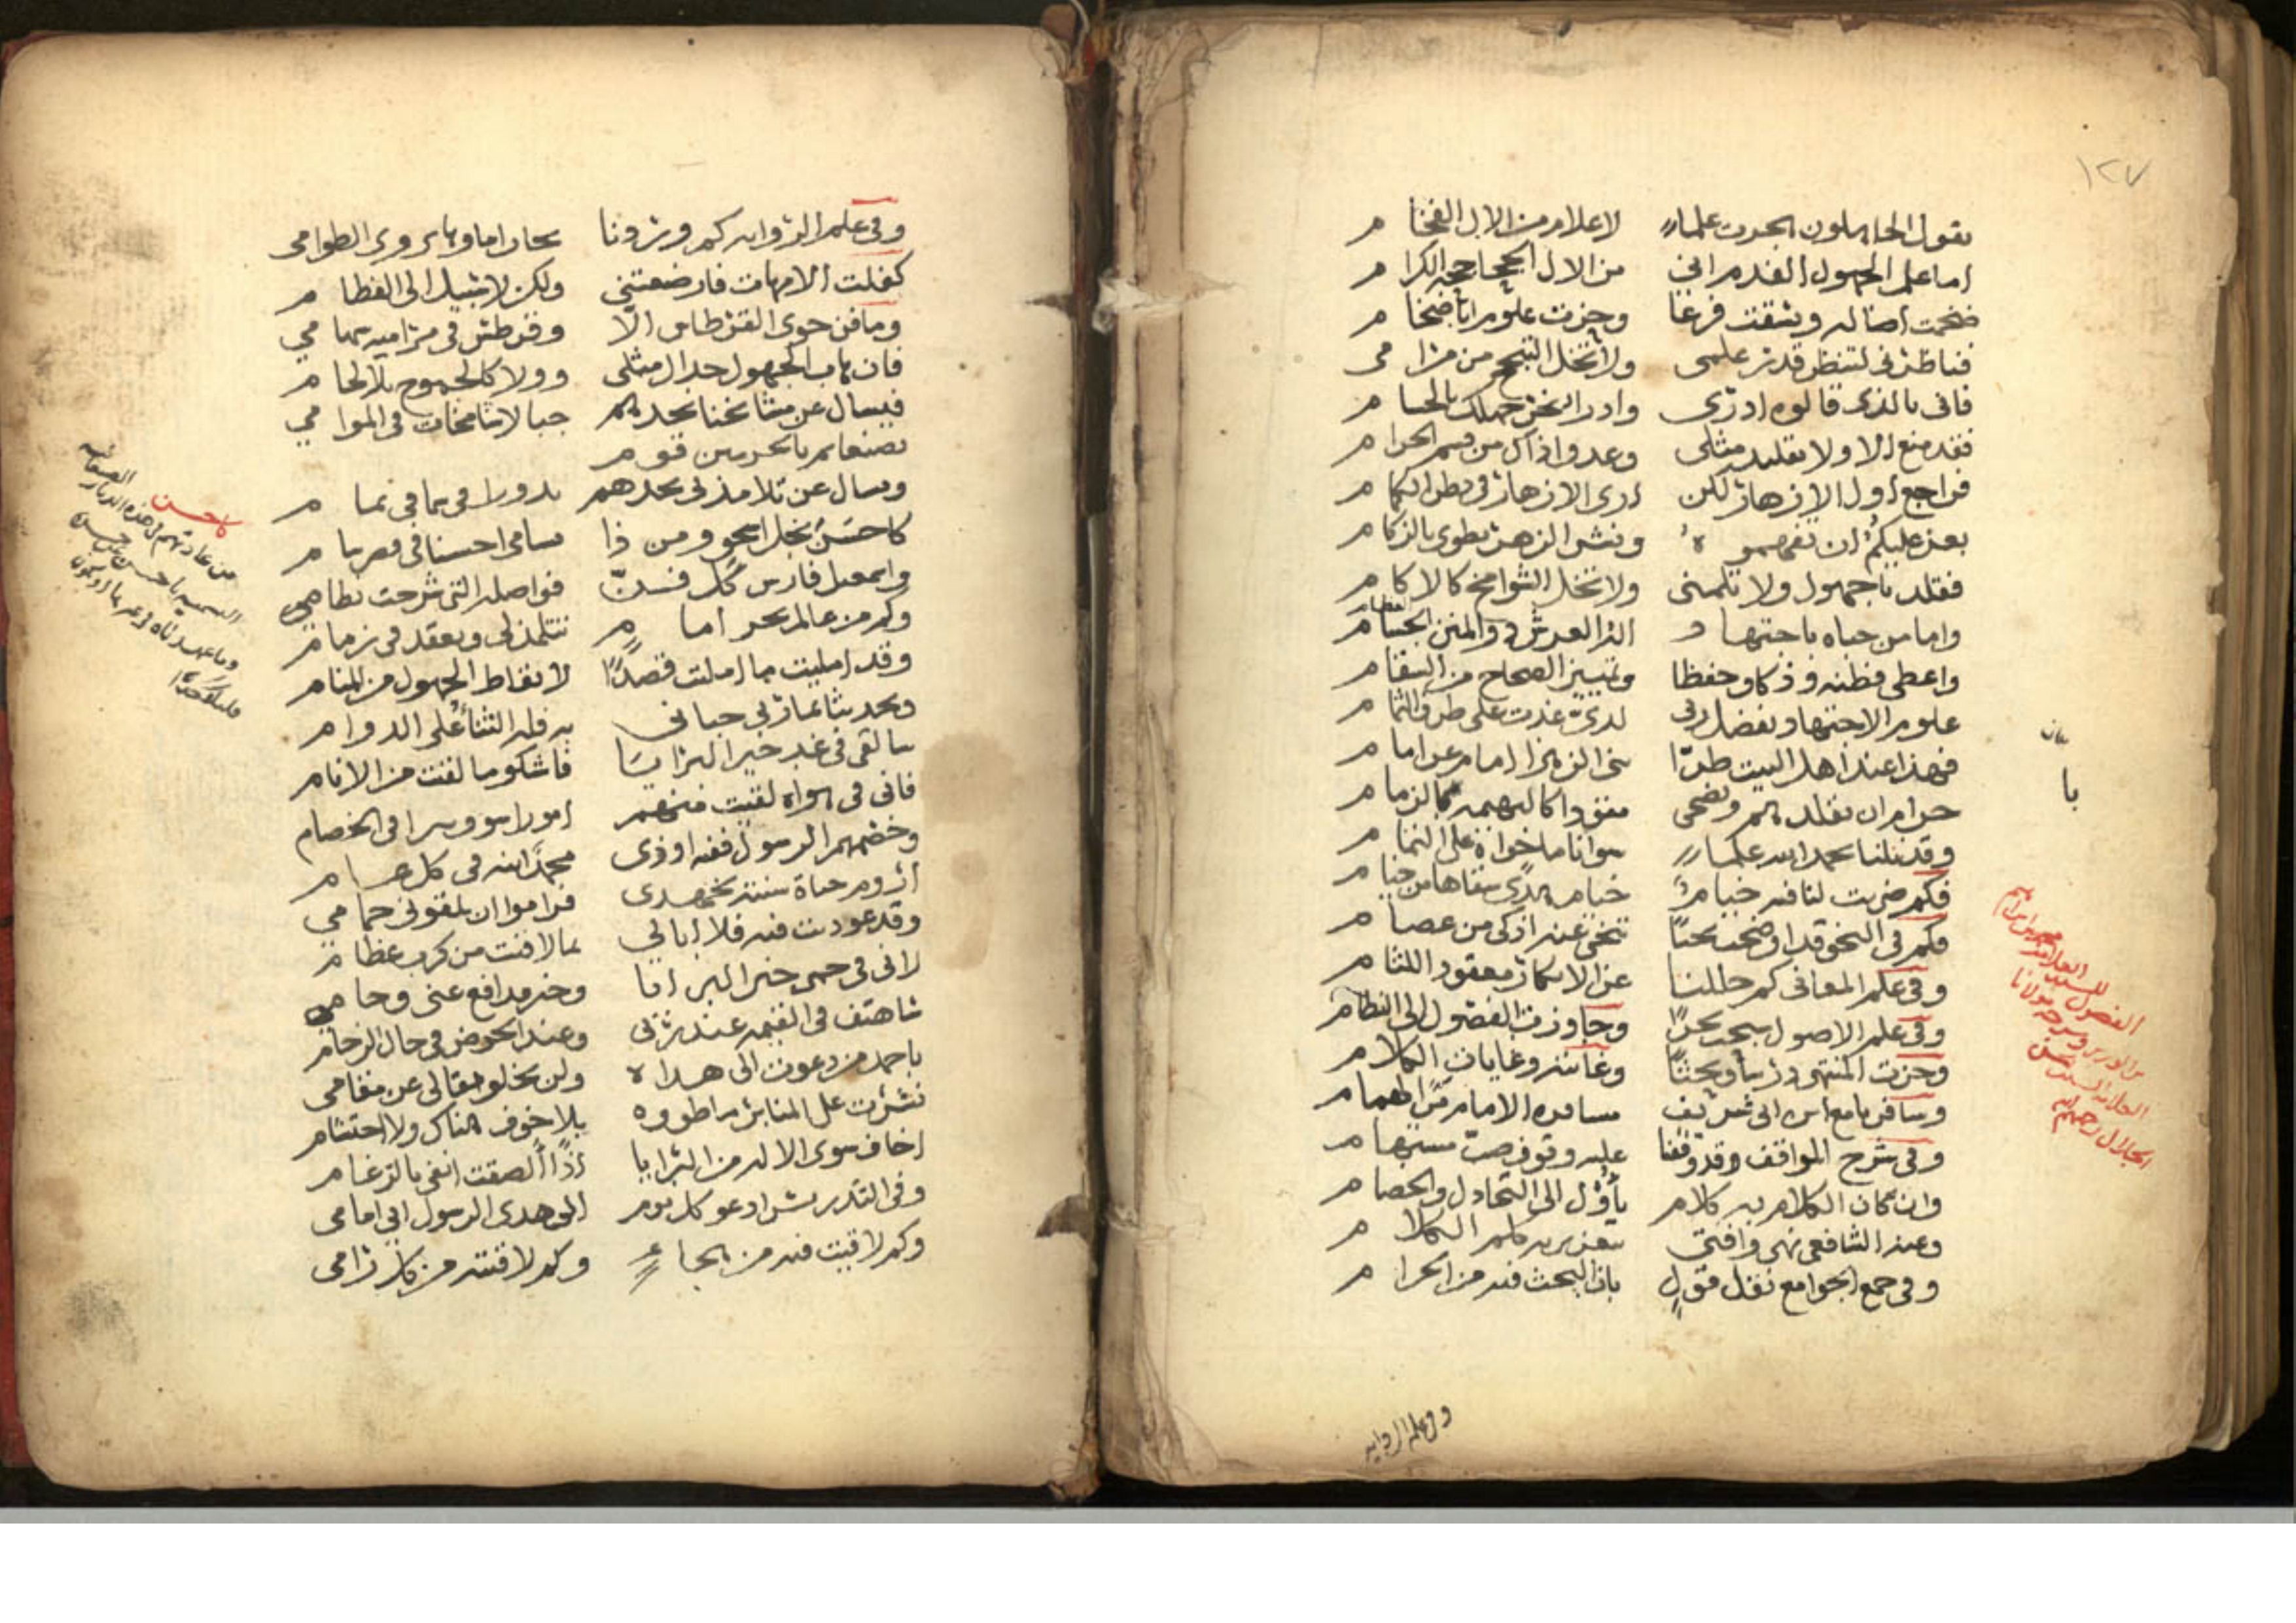 ١٢٧
يقول الجاهلون بجرت علماء لاعلام من الال الفخام
اما علم الجهول الفدم اني من الال الحجاجحه الكرام
ضخمت اصاله وبسقت فرعا وحزت علوم اباضخام
فناظرني لتنظر قدر علمي ولا تخل التبجح من مرامي
فاني بالذي قالوه ادرى وادرا نحر جهلك بالحسام
فقد منع الاولا تقليد مثلي وعدوا ذاك من قسم الحرام
فراجع اول الازهار لكن ارى الازهار في بطن الكمام
يعز عليكم ان تفهموه ونشر الزهر يطوى بالزكام
فقلد يا جهول ولا تلمني ولا تخل الشوامخ كالاكام
واما من حباه باجتهاد اله العرش ذو المنن الجسام
واعطى فطنه وذكا وحفظا وتمييز الصحاح من السقام
علوم الاجتهاد بفضل ربي لدي غدت على طرف الثمام
فهذا عند اهل البيت طرا بني الزهرا امام عن امام
حرام ان يقلدهم ويضحى مقودا كالبهيمه بالزمام
وقد نلنا بحمد الله علما سوانا ما حواه على التمام
فكم ضربت لنا فيه خيام خيام هدى سقاها من خيام
فكم في النحو قد اوضحت بحثا تنحى عنه اذكى من عصام
وفي علم المعاني كم حللنا عن الابكار معقود اللثام
وفي علم الاصول سبحت بحرا وجاوزت الفصول الى النظام
وحزت المنتهى درسا وبحثا وغايته وغايات الكلام
وسافرنا مع اس الى شريف مسافرة الامام من الهمام
وفي شرح المواقف قد وقفنا عليه وقوف صب مستهام
وان كان الكلام به كلام يأول الى التجادل والخصام
وعند الشافعي نهى وافتى بتعزير به علم الكلام
وفي جمع الجوامع نقل قول بان البحث فيه من الحرام
بان
با
الفصول للسيد العلامه ابراهيم
بن الوزير وشرحه مولانا
العلامه السيد حسن
الجلال رحمهم الله
وفي علم الروايه
وفي علم الروايه كم وردنا بحارا ماؤها يروي الطوامي
كفلت الامهات فارضعتني ولكن لا سبيل الى الفطام
وما فن حوى القرطاس الا وقرطس في مراميه سهامي
فان هاب الجهول جدال مثلي وولا كالجموح بلا لجام
فيسال عن مشائخنا يجدهم جبالا شامخات في الموامي
بصنعا ثم بالحرمين قوم
ويسال عن تلامذتي يجدهم بدورا في سما في تمام
كاحسن نجل اسحق ومن ذا يسامي احسنا في فهم سام
واسمعيل فارس كل فن فواصله التي شرحت نظامي
وكم من عالم بحر امام تتلمذ لي ويعقد في زمام
وقد امليت ما امليت قصدا لايقاظ الجهول من المنام
وتحديثا بما ربي حباني به فله الثنا على الدوام
سالقى في غد خير البرايا فاشكو ما لقيت من الانام
فاني في هواه لقيت منهم امورا سو وسرا في الخصام
وخصمهم الرسول ففيه اوذى محمد ابنه في كل عام
اروم حياة سنته بجهدي فراموا ان يلقوني حمامي
وقد عودت فيه فلا ابالي بما لاقيت من كرب عظام
لاني في حمى خير البرايا وخير مدافع عني وحامي
شاهتف في القيمه عند ربي وعند الحوض في حال الزحام
باحمد من دعوت الى هداه ولن يخلو مقالي عن مقامي
نشرت على المنابر ما طووه بلا خوف هناك ولا احتشام
اخاف سوى الاله من البرايا اذا الصقت انفي بالرغام
وفي التدريس ادعو كل يوم الى هدي الرسول ابي امامي
وكم لاقيت فيه من هجاء وكم لاقيته من كل رامي
كاحسن
من عادتهم في هذه الديار الصنعانيه